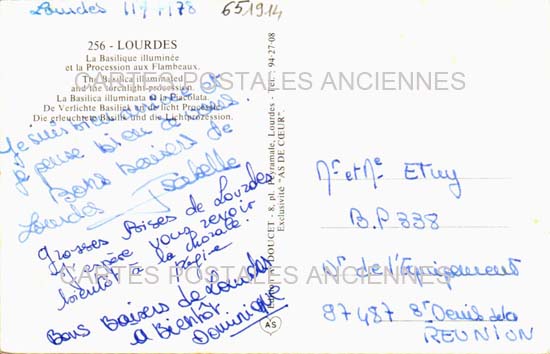 Lourdes 11/9/78
651914
256 - LOURDES
La Basilique illuminée
et la Procession aux Flambeaux.
The Basilica illuminated
and the torchlight-procession.
La Basilica illuminata e la Fiacolata.
De Verlichte Basiliek en de licht Processie.
Die erleuchtete Basilik und die Lichtprozession.
CARTES POSTALES ANCIENNES
Je suis bien arrivée et
je pense bien à vous.
Bons baisers de
Lourdes Isabelle
Grosses Bises de Lourdes
J'espère vous revoir
bientôt à la chorale.
Bons Baisers de Lourdes
A Bientôt
Dominique
DOUCET - 8, pl. Peyramale, Lourdes - Tél. 94-27-08
Exclusivité "AS DE CŒUR"
AS
Mr et Me ETuy
B.P 338
CARTES POSTALES ANCIENNES
de l'Equipement
97487 St Denis de la
REUNION